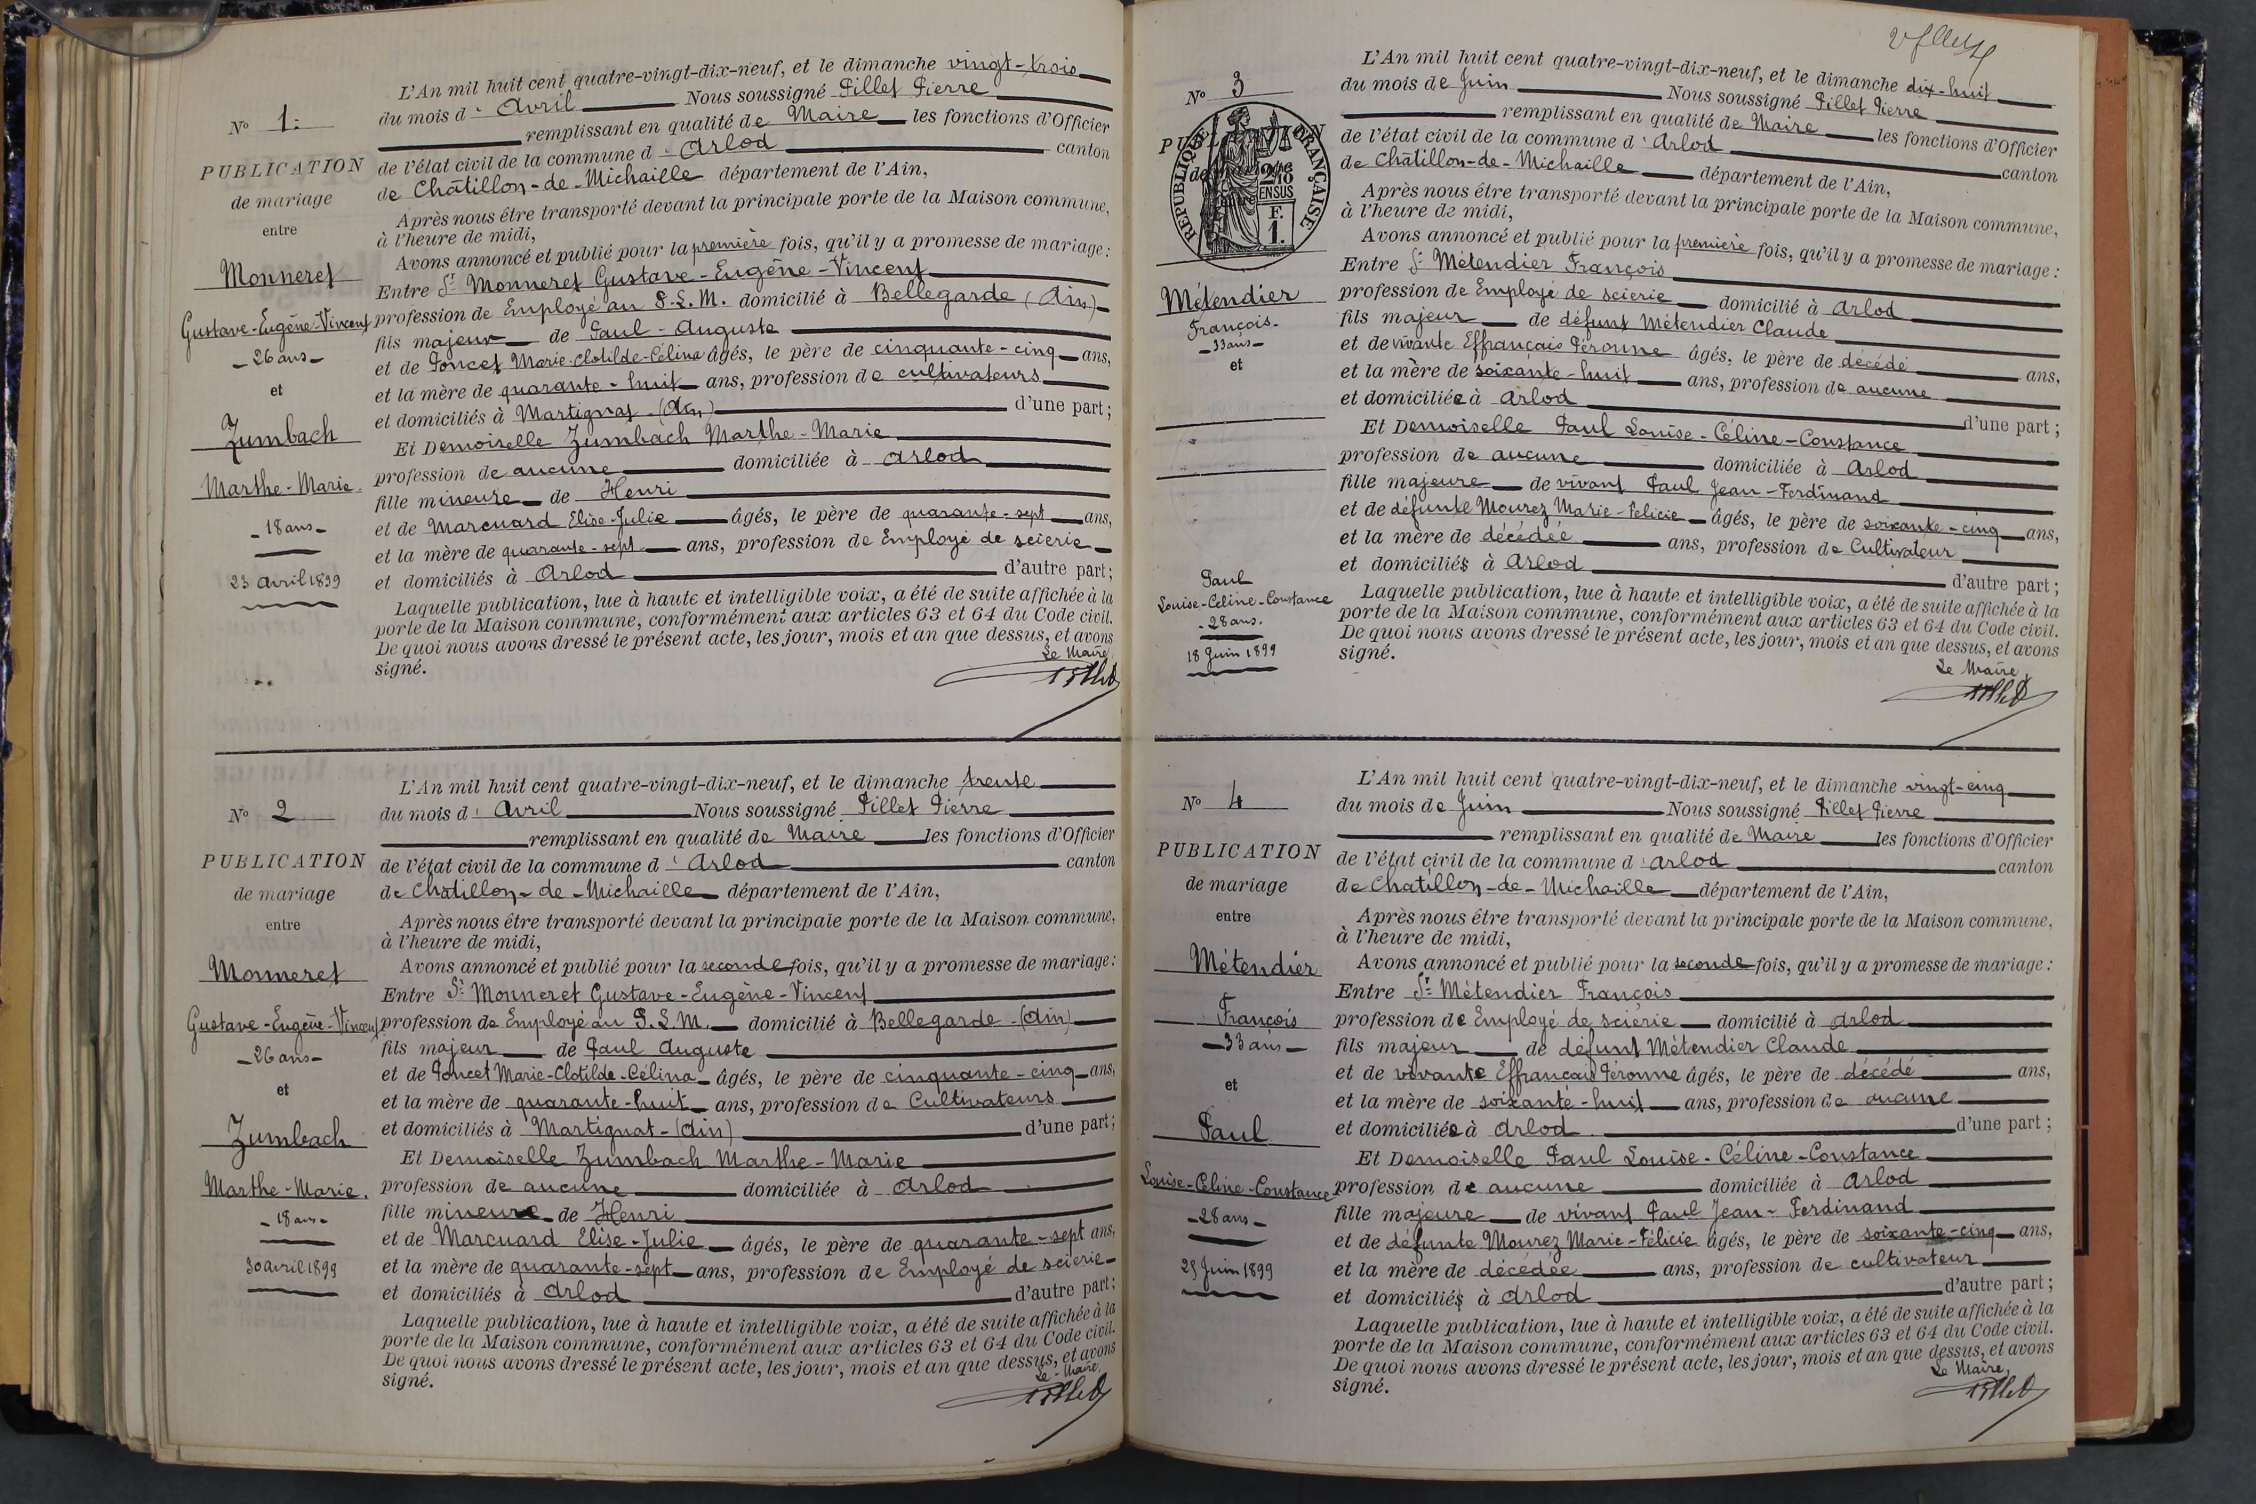 N° 1.
PUBLICATION
de mariage
entre
Monneret
Gustave-Eugène-Vincent
- 26 ans -
et
Zumbach
Marthe-Marie.
- 18 ans -
23 avril 1899
L'An mil huit cent quatre-vingt-dix-neuf, et le dimanche vingt-trois
du mois d'Avril Nous soussigné Pillet Pierre
remplissant en qualité de Maire les fonctions d'Officier
de l'état civil de la commune d'Arlod canton
de Châtillon-de-Michaille département de l'Ain,
Après nous être transporté devant la principale porte de la Maison commune,
à l'heure de midi,
Avons annoncé et publié pour la première fois, qu'il y a promesse de mariage :
Entre Sr Monneret Gustave-Eugène-Vincent
profession de Employé au P.L.M. domicilié à Bellegarde (Ain)
fils majeur de Paul-Auguste
et de Poncet Marie-Clotilde-Célina âgés, le père de cinquante-cinq ans,
et la mère de quarante-huit ans, profession de cultivateurs
et domiciliés à Martignat (Ain) d'une part ;
Et Demoiselle Zumbach Marthe-Marie
profession de aucune domiciliée à Arlod
fille mineure de Henri
et de Marcuard Elise-Julie âgés, le père de quarante-sept ans,
et la mère de quarante-sept ans, profession de Employé de scierie
et domiciliés à Arlod d'autre part ;
Laquelle publication, lue à haute et intelligible voix, a été de suite affichée à la
porte de la Maison commune, conformément aux articles 63 et 64 du Code civil.
De quoi nous avons dressé le présent acte, les jour, mois et an que dessus, et avons
signé.
Le Maire
Pillet
N° 2
PUBLICATION
de mariage
entre
Monneret
Gustave-Eugène-Vincent
- 26 ans -
et
Zumbach
Marthe-Marie.
- 18 ans -
30 avril 1899
L'An mil huit cent quatre-vingt-dix-neuf, et le dimanche trente
du mois d'Avril Nous soussigné Pillet Pierre
remplissant en qualité de Maire les fonctions d'Officier
de l'état civil de la commune d'Arlod canton
de Chatillon-de-Michaille département de l'Ain,
Après nous être transporté devant la principale porte de la Maison commune,
à l'heure de midi,
Avons annoncé et publié pour la seconde fois, qu'il y a promesse de mariage :
Entre Sr Monneret Gustave-Eugène-Vincent
profession de Employé au P.L.M. domicilié à Bellegarde (Ain)
fils majeur de Paul Auguste
et de Poncet Marie-Clotilde-Célina âgés, le père de cinquante-cinq ans,
et la mère de quarante-huit ans, profession de Cultivateurs
et domiciliés à Martignat (Ain) d'une part ;
Et Demoiselle Zumbach Marthe-Marie
profession de aucune domiciliée à Arlod
fille mineure de Henri
et de Marcuard Elise-Julie âgés, le père de quarante-sept ans,
et la mère de quarante-sept ans, profession de Employé de scierie
et domiciliés à Arlod d'autre part ;
Laquelle publication, lue à haute et intelligible voix, a été de suite affichée à la
porte de la Maison commune, conformément aux articles 63 et 64 du Code civil.
De quoi nous avons dressé le présent acte, les jour, mois et an que dessus, et avons
signé.
Le Maire,
Pillet
N° 3
PUBLICATION
de mariage
RÉPUBLIQUE FRANÇAISE
2/10 EN SUS
F. 1.
Métendier
François.
- 33 ans -
et
Paul
Louise-Céline-Constance
- 28 ans.
18 Juin 1899
L'An mil huit cent quatre-vingt-dix-neuf, et le dimanche dix-huit
du mois de Juin Nous soussigné Pillet Pierre
remplissant en qualité de Maire les fonctions d'Officier
de l'état civil de la commune d'Arlod canton
de Châtillon-de-Michaille département de l'Ain,
Après nous être transporté devant la principale porte de la Maison commune,
à l'heure de midi,
Avons annoncé et publié pour la première fois, qu'il y a promesse de mariage :
Entre Sr Métendier François
profession de Employé de scierie domicilié à Arlod
fils majeur de défunt Métendier Claude
et de vivante Effrançais Péronne âgés, le père de décédé ans,
et la mère de soixante-huit ans, profession de aucune
et domiciliée à Arlod d'une part ;
Et Demoiselle Paul Louise-Céline-Constance
profession de aucune domiciliée à Arlod
fille majeure de vivant Paul Jean-Ferdinand
et de défunte Mourez Marie-Félicie âgés, le père de soixante-cinq ans,
et la mère de décédée ans, profession de Cultivateur
et domiciliés à Arlod d'autre part ;
Laquelle publication, lue à haute et intelligible voix, a été de suite affichée à la
porte de la Maison commune, conformément aux articles 63 et 64 du Code civil.
De quoi nous avons dressé le présent acte, les jour, mois et an que dessus, et avons
signé.
Le Maire,
Pillet
N° 4
PUBLICATION
de mariage
entre
Métendier
François
- 33 ans -
et
Paul
Louise-Céline-Constance
- 28 ans -
25 Juin 1899
L'An mil huit cent quatre-vingt-dix-neuf, et le dimanche vingt-cinq
du mois de Juin Nous soussigné Pillet Pierre
remplissant en qualité de Maire les fonctions d'Officier
de l'état civil de la commune d'Arlod canton
de Chatillon-de-Michaille département de l'Ain,
Après nous être transporté devant la principale porte de la Maison commune,
à l'heure de midi,
Avons annoncé et publié pour la seconde fois, qu'il y a promesse de mariage :
Entre Sr Métendier François
profession de Employé de scierie domicilié à Arlod
fils majeur de défunt Métendier Claude
et de vivante Effrançais Péronne âgés, le père de décédé ans,
et la mère de soixante-huit ans, profession de aucune
et domiciliée à Arlod d'une part ;
Et Demoiselle Paul Louise-Céline-Constance
profession de aucune domiciliée à Arlod
fille majeure de vivant Paul Jean-Ferdinand
et de défunte Mourez Marie-Félicie âgés, le père de soixante-cinq ans,
et la mère de décédée ans, profession de cultivateur
et domiciliés à Arlod d'autre part ;
Laquelle publication, lue à haute et intelligible voix, a été de suite affichée à la
porte de la Maison commune, conformément aux articles 63 et 64 du Code civil.
De quoi nous avons dressé le présent acte, les jour, mois et an que dessus, et avons
signé.
Le Maire,
Pillet